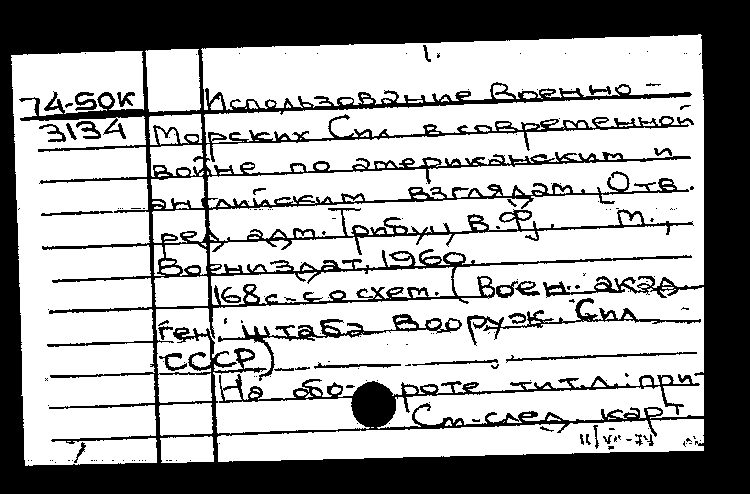 1.
74-50к Использование Военно-
3134 Морских Сил в современной
войне по американским и
английским взглядам. [Отв.
ред. адм. Трибуц В.Ф.] М.,
Воениздат, 1960.
168 с. со схем. (Воен. акад
ген. штаба Вооруж. Сил
СССР)
На обо- роте тит.л.: при-
См. след. карт.